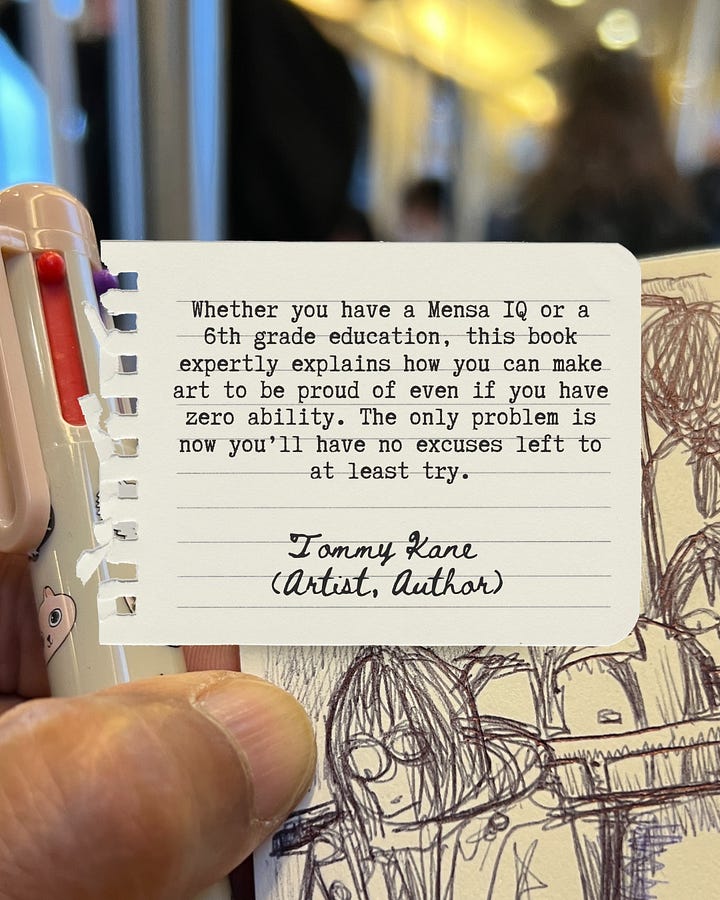 Whether you have a Mensa IQ or a
6th grade education, this book
expertly explains how you can make
art to be proud of even if you have
zero ability. The only problem is
now you’ll have no excuses left to
at least try.
Tommy Kane
(Artist, Author)